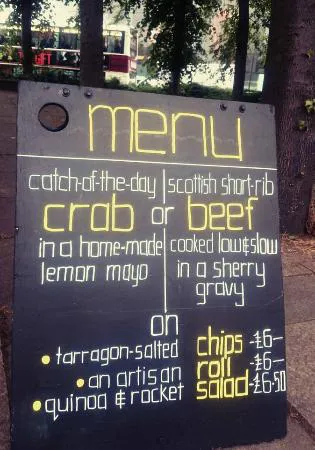 menu
catch-of-the-day
crab
in a home-made
lemon mayo
or
scottish short-rib
beef
cooked low & slow
in a sherry
gravy
on
• tarragon-salted chips -£6-
• an artisan roll -£6-
• quinoa & rocket salad -£6.50